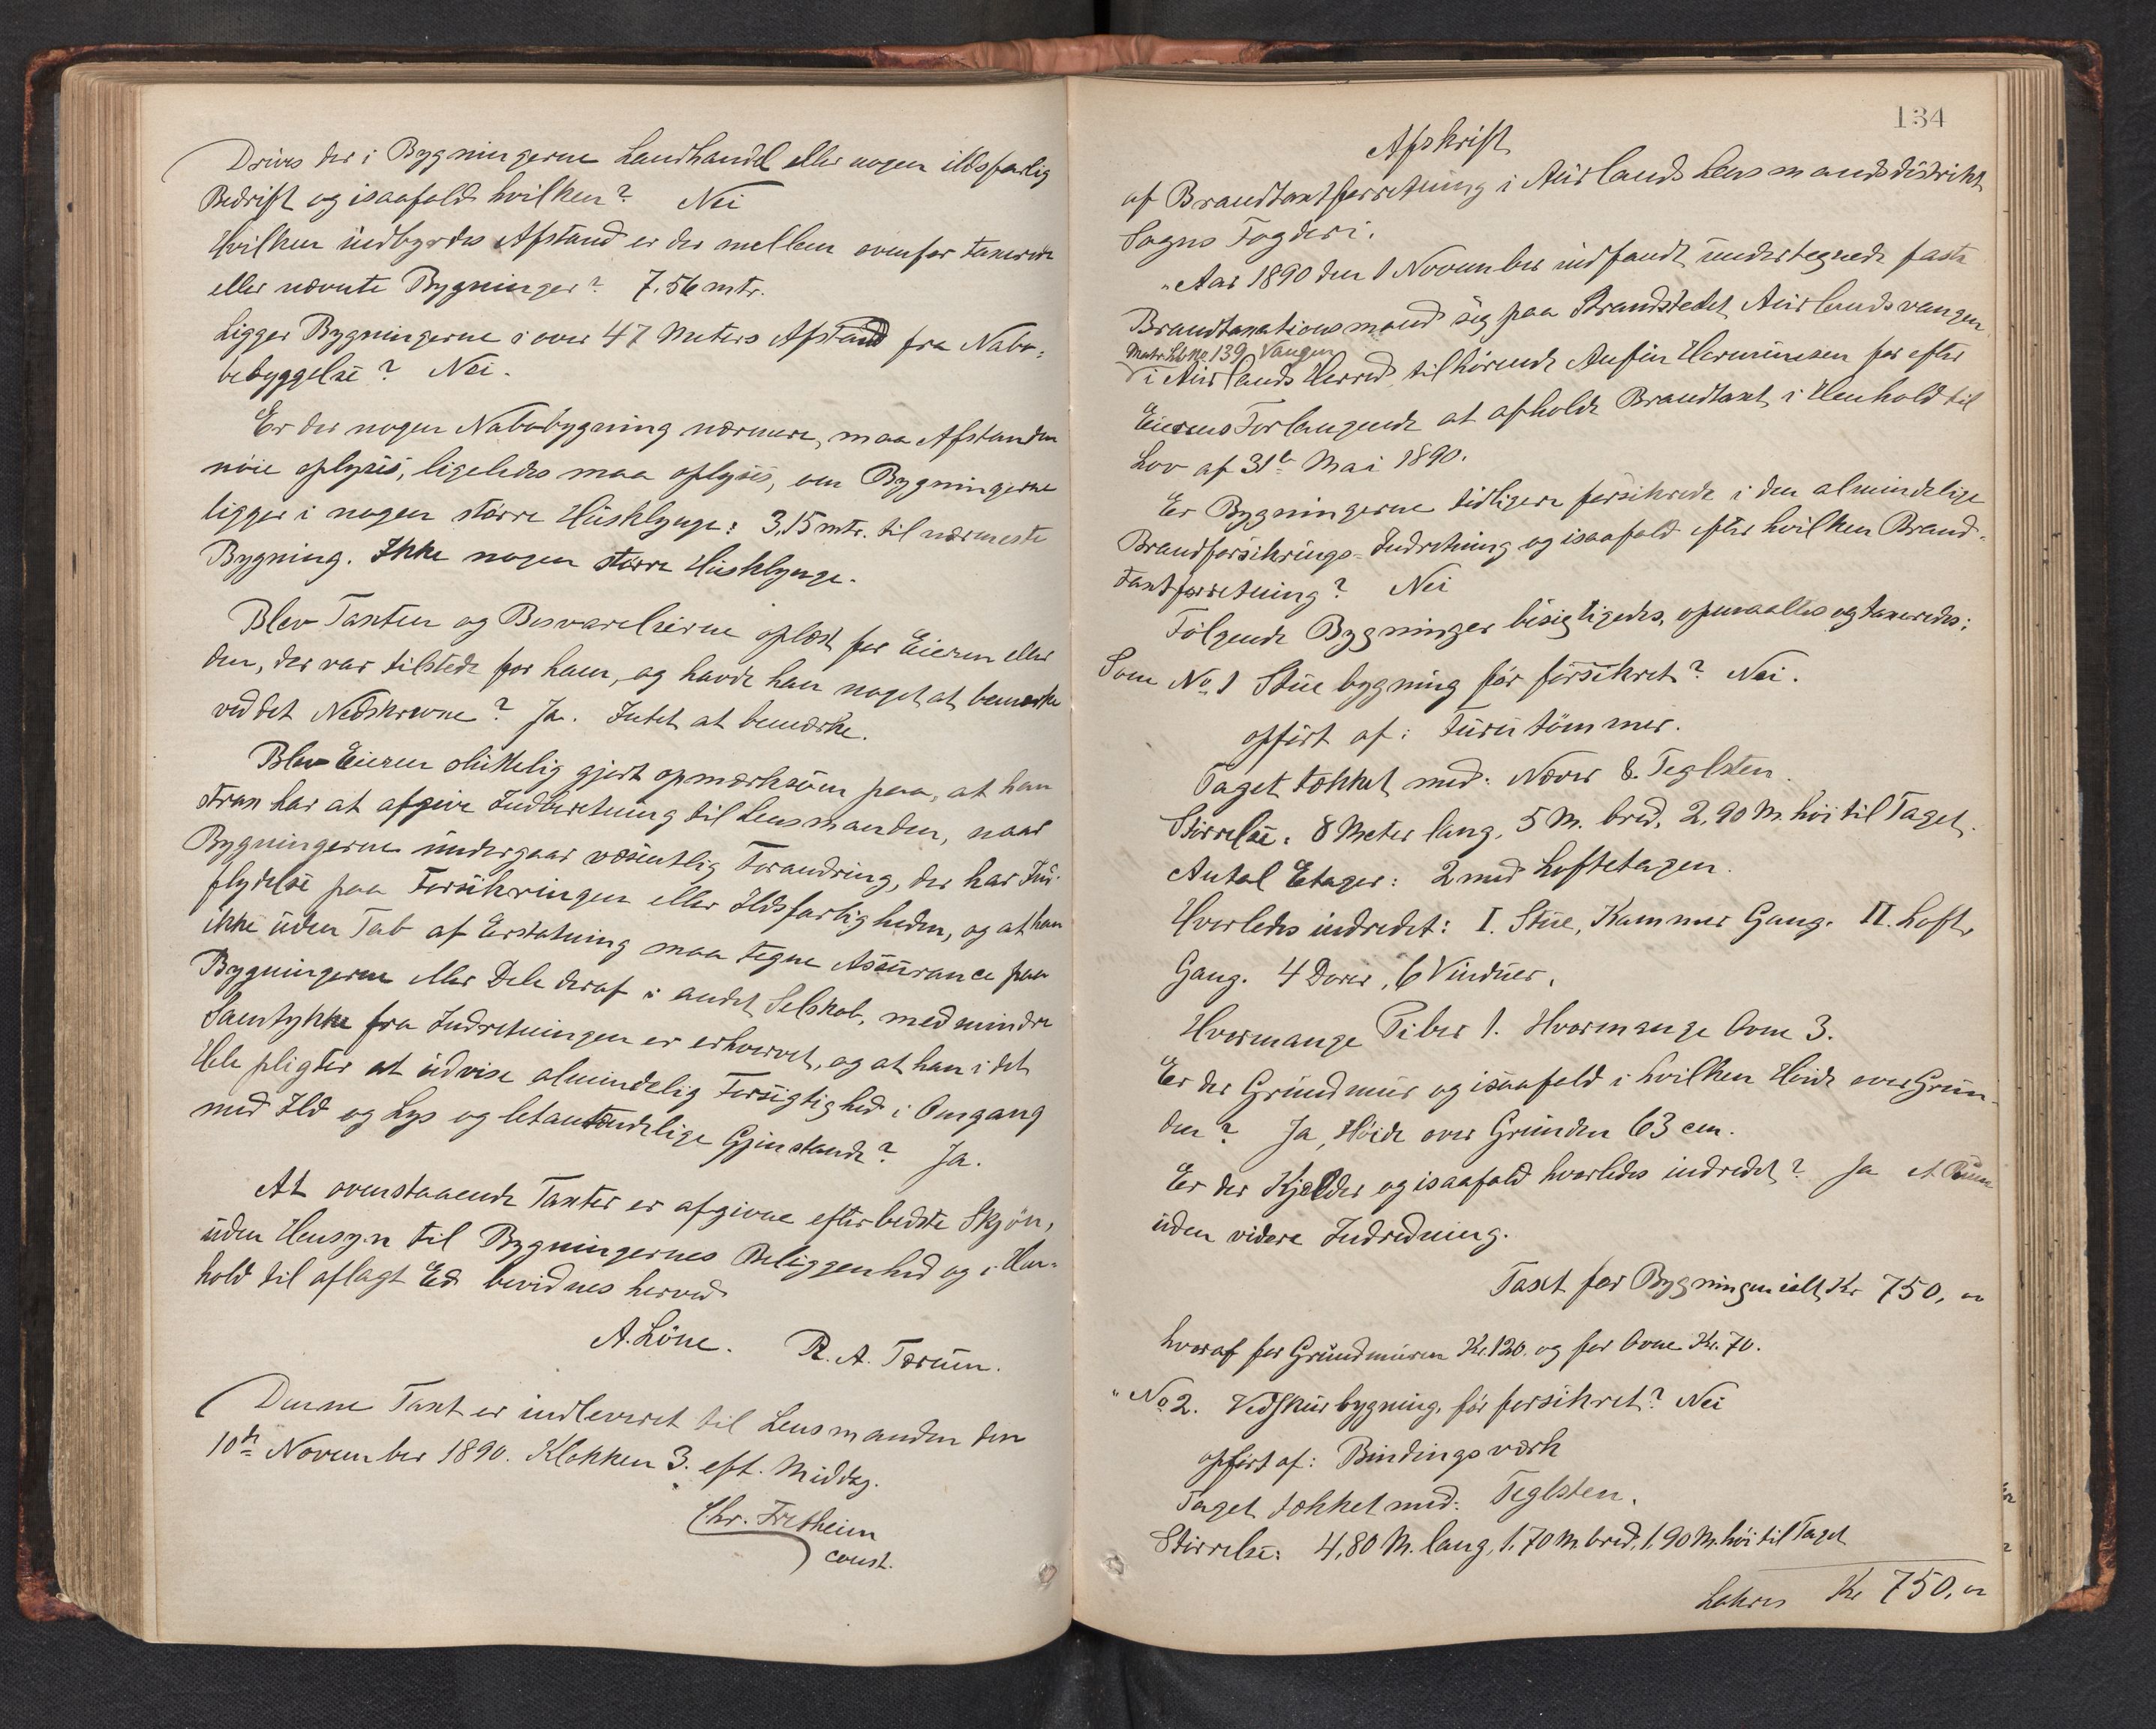 Drives der i Bygningerne Landhandel eller nogen ildsfarlig
Bedrift og isaafald hvilken? Nei
Hvilken indbyrdes Afstand er der mellem ovenfor taxerede
eller nævnte Bygninger? 7.56 mtr.
Ligger Bygningerne i over 47 Meters Afstand fra Nabo-
bebyggelse? Nei.
Er der nogen Nabobygning nærmere, maa Afstanden
nöie oplyses, ligeledes maa oplyses, om Bygningerne
ligger i nogen större Husklynge: 3,15 mtr. til nærmeste
Bygning. Ikke nogen større Husklynge.
Blev Taxten og Besvarelserne oplæst for Eieren eller
den, der var tilstede for ham, og havde han noget at bemærke
ved det Nedskrevne? Ja. Intet at bemærke.
Blev Eieren sluttelig gjort opmærksom paa, at han
strax har at afgive Indberetning til Lensmanden, naar
Bygningerne undergaar væsentlig Forandring, der har Ind-
flydelse paa Forsikringen eller Ildsfarligheden, og at han
ikke uden Tab af Erstatning maa tegne Assurance paa
Bygningerne eller Dele deraf i andet Selskab, medmindre
Samtykke fra Indretningen er erhvervet, og at han i det
Hele pligter at udvise almindelig Forsigtighed i Omgang
med Ild og Lys og letantændelige Gjenstande? Ja.
At ovenstaaende Taxter er afgivne efter bedste Skjön,
uden Hensyn til Bygningernes Beliggenhed og i Hen-
hold til aflagt Ed bevidnes herved
A. Löne. R. A. Tærum.
Denne Taxt er indleveret til Lensmanden den
10de November 1890. Klokken 3. eft. Middag.
Chr. Fretheim
const.
134
Afskrift
af Brandtaxtforretning i Aurlands Lensmandsdistrikt
Sogns Fogderi.
"Aar 1890 den 1 November indfandt undertegnede faste
Brandtaxationsmænd sig paa Brandstedet Aurlandsvangen
Matr. Lb. no. 139 Vangen
i Aurlands Herred, tilhörende Anfin Hermunsen for efter
Eierens Forlangende at afholde Brandtaxt i Henhold til
Lov af 31te Mai 1890.
Er Bygningerne tidligere forsikrede i den almindelige
Brandforsikrings-Indretning og isaafald efter hvilken Brand-
taxtforretning? Nei
Fölgende Bygninger besigtigedes, opmaaltes og taxeredes:
Som No 1 Stuebygning för forsikret? Nei.
opfört af: Furu tömmer.
Taget tækket med: Næver & Teglsten.
Störrelse: 8 Meter lang, 5 M. bred, 2,90 M. höi til Taget.
Antal Etager: 2 med Loftetagen.
Hvorledes indredet: I. Stue, Kammer Gang. II. Loft,
Gang. 4 Dører, 6 Vinduer.
Hvormange Piber 1. Hvormange Ovne 3.
Er der Grundmur og isaafald i hvilken Höide over Grun-
den? Ja, Höide over Grunden 63 cm.
Er der Kjælder og isaafald hvorledes indredet? Ja et Rum
uden videre Indredning.
Taxt for Bygningen ialt Kr 750, "
hvoraf for Grundmuren Kr. 120. og for Ovne Kr. 70.
" No 2. Vedskurbygning, för forsikret? Nei
opfört af: Bindingsværk
Taget tækket med: Teglsten.
Störrelse: 4,80 M. lang, 1,70 M. bred, 1,90 M. höi til Taget
Lateres Kr 750, "